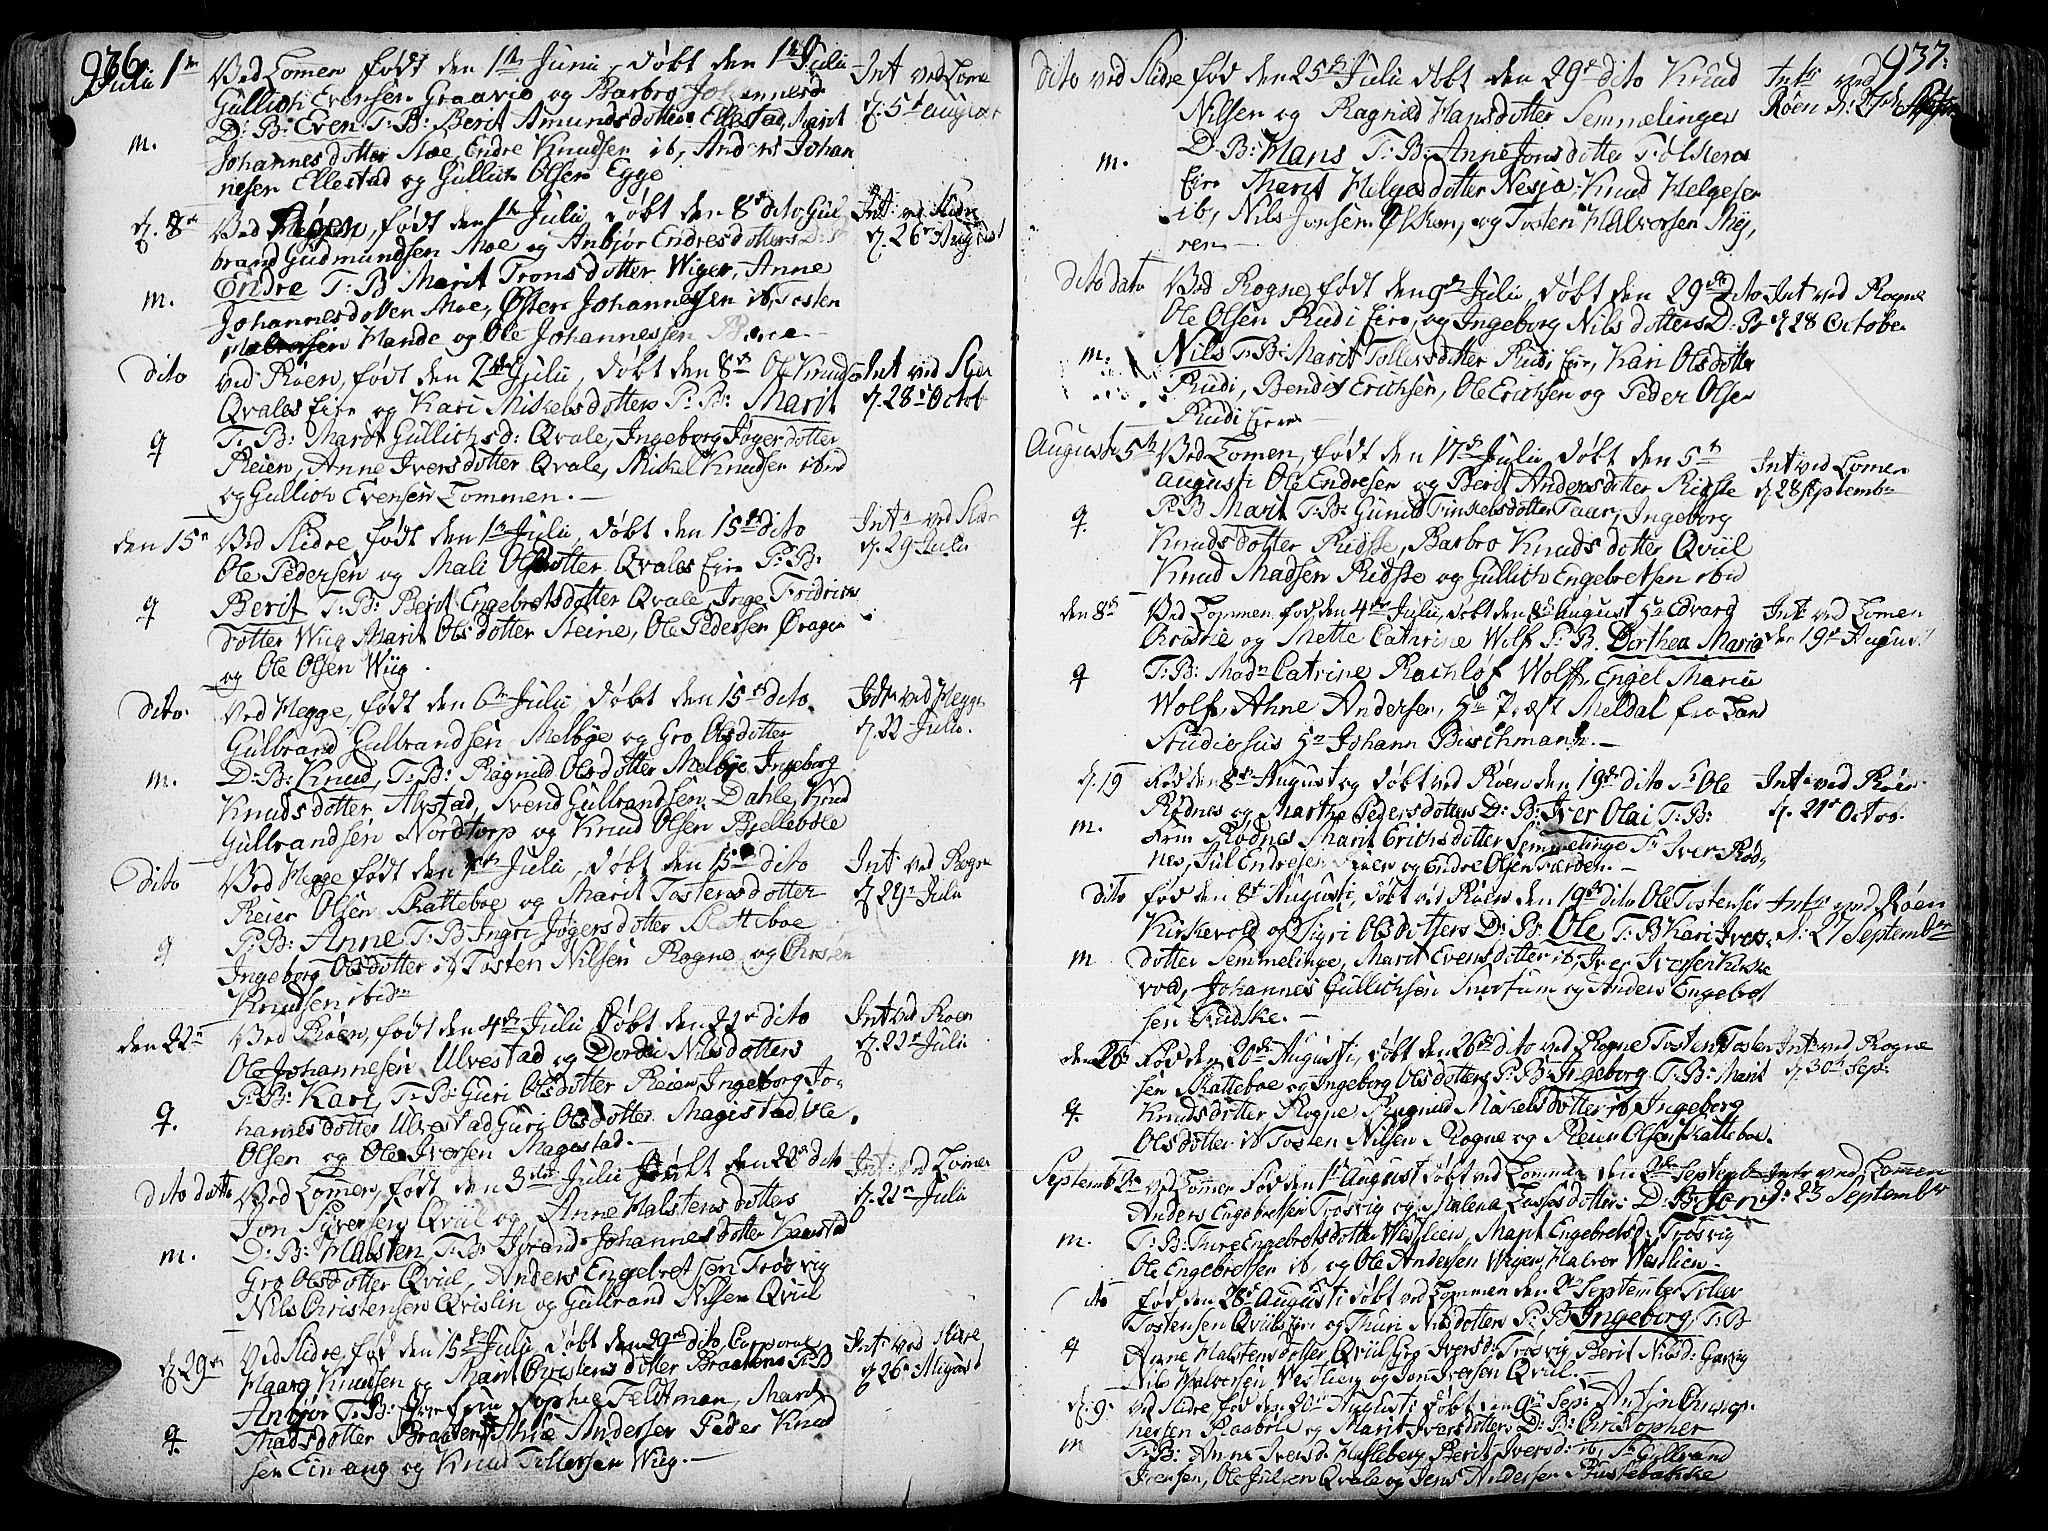 936.
Julii 1te Ved Lomen født den 1te Junii, døbt den 1te Julii Int ved Lome
Gullich Evensen Graavio og Barbro Johannesd d. 5te august
D: B: Even T: B: Berit Amundsdotter Ellestad, Marit
m. Johannesdotter Moe, Endre Knudsen ib, Anders Johan
nesen Ellestad og Gullich Olsen Egge
d. 8de Ved Røen, født den 1te Julii, døbt den 8de dito, Gul Int: ved Slidre
brand Gudmundsen Moe og Anbjør Endresdotters D: B: d. 26de August
Endre T: B Marit Tronsdotter Wiger, Anne
m. Johannesdotter Moe, Østen Johannessen ib, Tosten
Hande og Ole Johannessen
dito ved Røen, født den 2den Julii, døbt den 8de Ole Knuds Int ved Slidr
Qvales Eje og Kari Mikelsdotters P: B: Marit d. 28de Octob
q T: B: Marit Gullichsd: Qvale, Ingeborg Jøgersdotter
Reien, Anne Iversdotter Qvale, Mikel Knudsen ibid
og Gullich Evensen Lommen.
den 15de Ved Slidre, født den 1te Julii, døbt den 15de dito Int ved Slidr
Ole Pedersen og Mali Olsdotter Qvales Eje P: B: d. 29 Julii
q Berit T: B: Berit Engebretsdotter Qvale, Inge Fridrics
dotter Wiig Marit Olsdotter Steine, Ole Pedersen
og Ole Olsen Wiig.
dito. Ved Hegge, født den 6te Julii, døbt den 15de dito. Int ved Hegge
Gulbrand Gulbrandsen Melbye og Gro Olsdotter d. 22 Julii.
m. D: B: Knud, T: B: Ragnild Olsdotter Melbye Ingeborg
Knudsdotter Alvstad, Svend Gullrandsen Dahle, Knud
Gullrandsen Nordtorp og Knud Olsen Bellebøle
dito Ved Hegge født den Julii, døbt den 15de dito Int ved Rogne
Reier Olsen Skatteboe og Marit Tostensdotter d. 29de Julii
q P: B: Anne T: B Ingri Jøgersdotter Skatteboe
Ingeborg Olsdotter ib Tosten Nilsen Rogne og
Knudsen ibidm
den 22de Ved Røen, født den 4de Julii døbt den 22de dito Int ved Røen
Ole Johannesen Ulvestad og Dordei Nilsdotters d. 22de Julii
P: B: Kari, T: B: Guri Olsdotter Reien, Ingeborg Jo-
q. hannesdotter Ulvestad Guri Olsdotter Magestad, Ole
Olsen og Ole Iversen Magestad.
dito dato Ved Lomen, født den 3die Julii døbt den 22de dito Int: ved Lomen
Jon Syversen Qviil og Anne Halstensdotters d. 22de Julii
m. D: B: Halsten T: B: Jørand Johannesdotter
Gro Olsdotter Qviil, Anders Engebretsen Trøsvig
Nils Christensen Qvislin og Gullrand Nilsen Qviil
d. 29de Ved Slidre, født den 15de Julii døbt den 29de dito, Corporal Int ved Slidre
Haarg Knudsen og Marit Christensdotter Braatens P: B d. 26de August
Anbjør T: B: Sophie Feldtman, Marit
q. Madsdotter Braaten, Andersen Peder Knud
sen Einang og Knud Tollersen Wiig.
937.
dito ved Slidre fød den 25de Julii døbt den 29de dito Knud Intr ved
Nilsen og Ragnild Hansdotter Semmelinger Røen d: 27de
m. D: B: Hans T: B: Anne Jonsdotter
Eje Marit Helgesdotter Nesja, Knud Helgesen
ib, Nils Jonsen Ølken, og Tosten Halvorsen My,
ren
dito dato Ved Rogne, født den 9de Julii, døbt den 29de dito Int ved Rogne
Ole Olsen Rudi Eje, og Ingeborg Nilsdotters D: B: d 28 October
m. Nils T: B: Marit Tollersdotter Rudi Eje, Kari Olsdotter
Rudi, Bendix Erichsen, Ole Erichsen og Peder Olsen
Rudi Eje
Augusti 5te Ved Lomen, født den 17de Julii, døbt den 5te Int ved Lomen
Augusti Ole Endresen og Berit Andersdotter Ridste d. 28 Septembr
q. P: B Marit T: B: Gunild Tinkelsdotter Faar, Ingeborg
Knudsdotter Ridste, Barbro Knudsdotter Qviil
Knud Madsen Ridste og Gullich Engebretsen ibid
den 8de Ved Lommen fød den 4de Julii, døbt den 8de August Hr Edvard Int: ved Lomen
og Mette Cathrine Wolf P: B. Dorthea Maria den 19de August
q T: B: Mad Catrine Rachløf Wolff, Engel Maria
Wolf, Anne Andersen, Hr Præst Meldal fra Lan
Studiosus Hr Johann Buschmann.
d. 19 Fød den 8de August og døbt ved Røen den 19de dito Sr Ole Int ved Røen
Rødnes og Marthe Pedersdotters D: B: Iver Olai T: B: d. 21de Octob.
m. Frue Rødnes Marit Erichsdotter Semmelinge Sr Iver Rød,
nes, Jul Endresen Reien og Endre Olsen Færden.
dito fød den 8de Augusti, døbt ved Røen den 19de dito Ole Tostensen Int ved Røen
Kirkevold og Sigri Olsdotters D: B: Ole T: B Kari Ivers, d: 27 September
m dotter Semmelinge, Marit Evensdotter ib, Iver Iversen Kirke
vold, Johannes Gullichsen Snortum og Anders Engebret
sen Ridske.
den 26 Fød den 20de Augusti, døbt den 26de dito ved Rogne Tosten Tosten Int: ved Rogne
sen Skatteboe og Ingeborg Olsdotters P: B: Ingeborg T: B: Marit d. 30te Sept.
q. Knudsdotter Rogne, Ragnild Mikelsdotter ib Ingeborg
Olsdotter ib Tosten Nilsen Rogne og Reier Olsen Skatteboe.
Septemb 2de ved Lomen Fød den 1te August døbt ved Lommen den 2den Septemb Intr ved Lomen
Anders Engebretsen Trøsvig og Malena Lassesdotters D: B: Jon d: 23 Septembr
m. T: B: Thure Engebretsdotter Westlien, Marit Engebretsd: Trøsvig
Ole Engebretsen ib, og Ole Andersen Wigen, Halvor Westlien
dito fød den 28de Augusti døbt ved Lommen den 2den September Toller
Tostensen Qviils Eje og Thuri Nilsdotters P: B Ingeborg T: B
q Anne Halstensdotter Qviil Gro Iversd: Trøsvig Berit Nilsd:
Nils Halvorsen Vestlieng og Jon Iversen Qviil.
d. 9. ved Slidre fød den 20de Augusti døbt den 9de Sep:
hersen og Marit Iversdotters D: B: Christopher
m T: B: Anne Iversd: Halleberg Berit Iversd: ib, Gullrand
Iversen, Ole Julsen Qvale og Jens Andersen